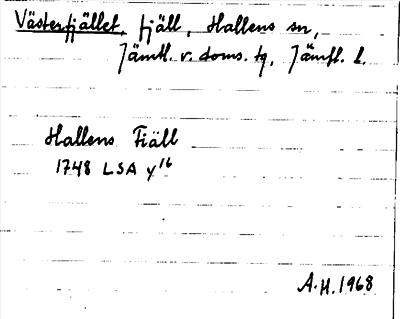 Västerfjället, fjäll, Hallens sn,
Jämtl. v. doms. tg, Jämtl. l.
Hallens Fiäll
1748 LSA y16
A.H. 1968